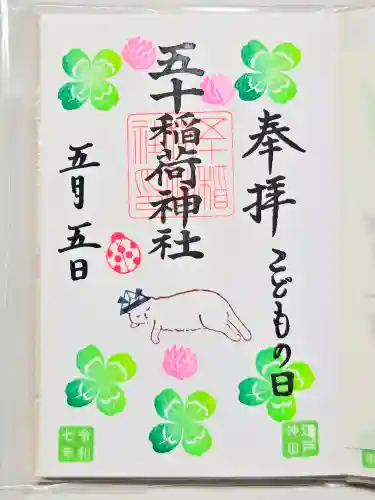 奉拝 こどもの日
五十稲荷神社
五月五日
江戸
神田
令和
七年